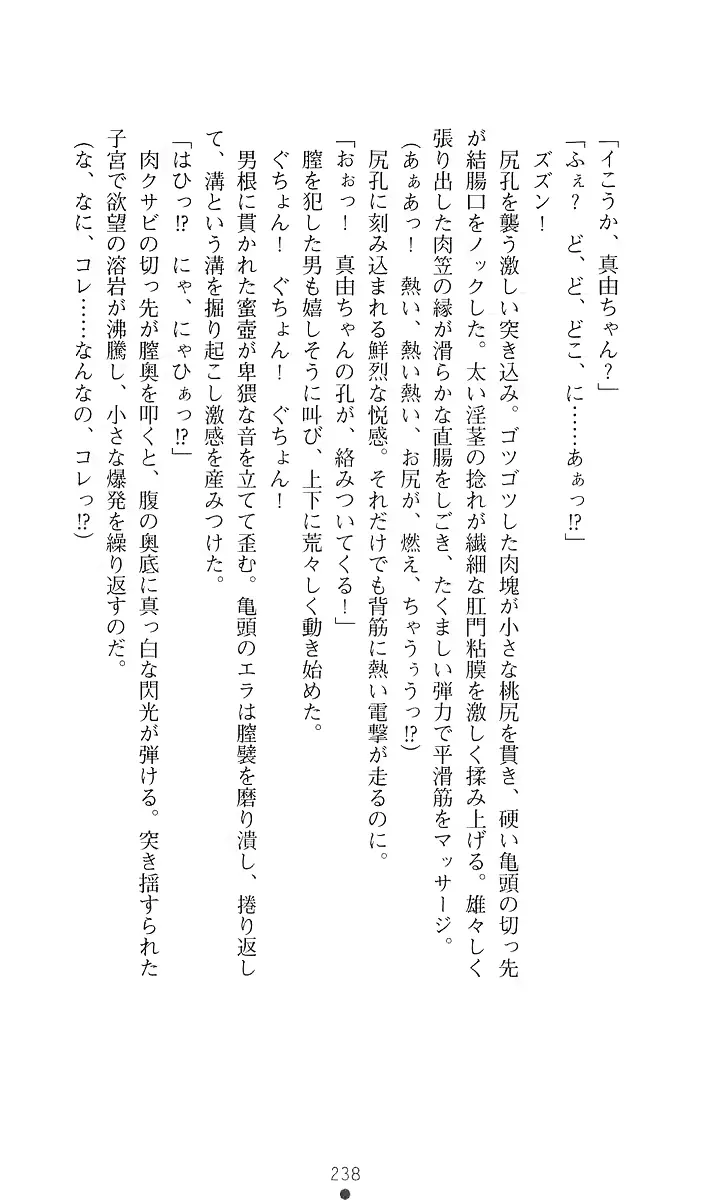 「イこうか、真由ちゃん？」
「ふぇ？　ど、ど、どこ、に……あぁっ!?」
ズズン！
尻孔を襲う激しい突き込み。ゴツゴツした肉塊が小さな桃尻を貫き、硬い亀頭の切っ先
が結腸口をノックした。太い淫茎の捻れが繊細な肛門粘膜を激しく揉み上げる。雄々しく
張り出した肉笠の縁が滑らかな直腸をしごき、たくましい弾力で平滑筋をマッサージ。
（あぁあっ！　熱い、熱い熱い、お尻が、燃え、ちゃうぅうっ!?）
尻孔に刻み込まれる鮮烈な悦感。それだけでも背筋に熱い電撃が走るのに。
「おぉっ！　真由ちゃんの孔が、絡みついてくる！」
膣を犯した男も嬉しそうに叫び、上下に荒々しく動き始めた。
ぐちょん！　ぐちょん！　ぐちょん！
男根に貫かれた蜜壺が卑猥な音を立てて歪む。亀頭のエラは膣襞を磨り潰し、捲り返し
て、溝という溝を掘り起こし激感を産みつけた。
「はひっ!?　にゃ、にゃひぁっ!?」
肉クサビの切っ先が膣奥を叩くと、腹の奥底に真っ白な閃光が弾ける。突き揺すられた
子宮で欲望の溶岩が沸騰し、小さな爆発を繰り返すのだ。
（な、なに、コレ……なんなの、コレっ!?）
238